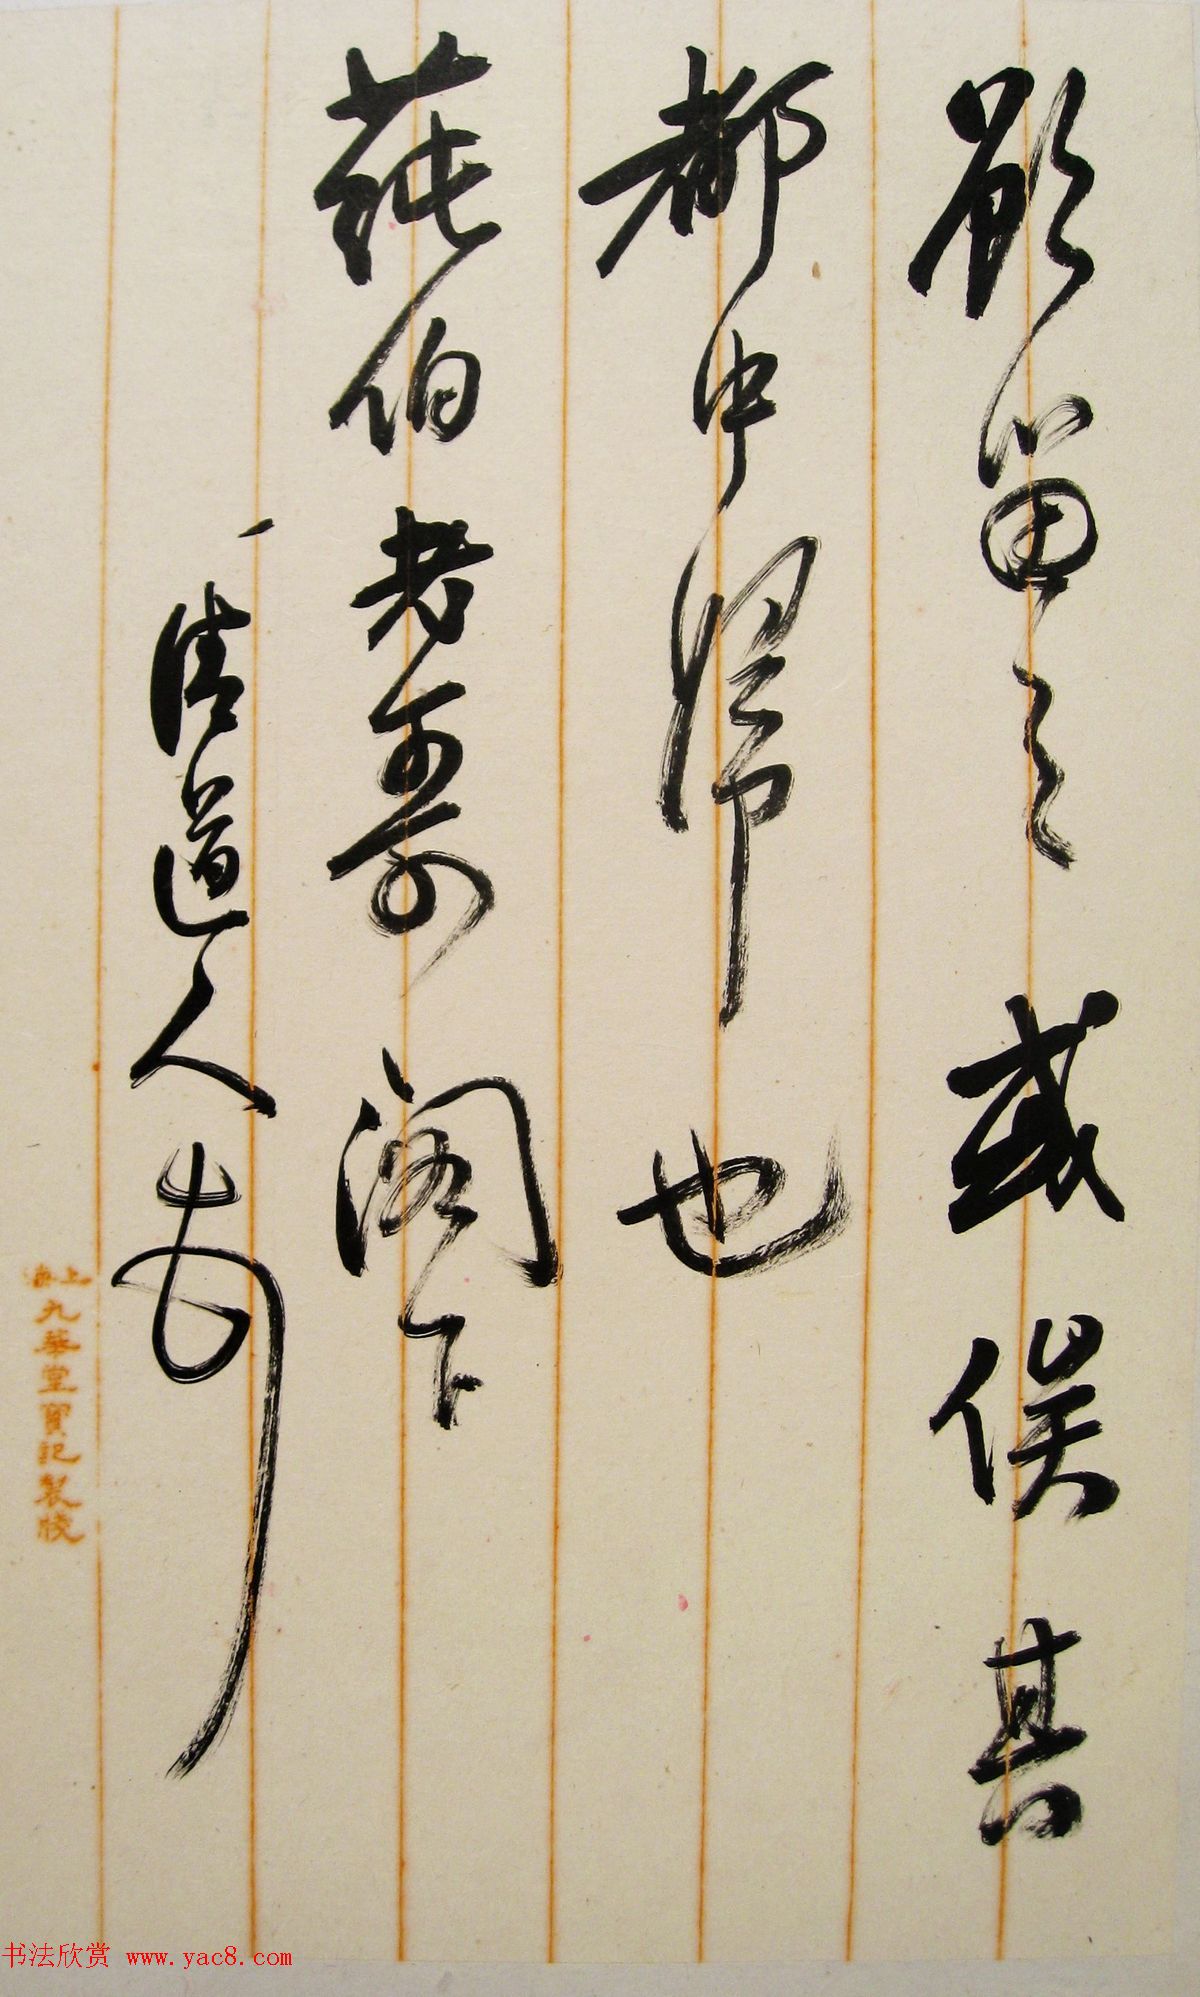 欲留之或俟其
都中歸也
莼伯老哥閣下
清道人頓
上海九華堂寶記製牋
书法欣赏 www.yac8.com